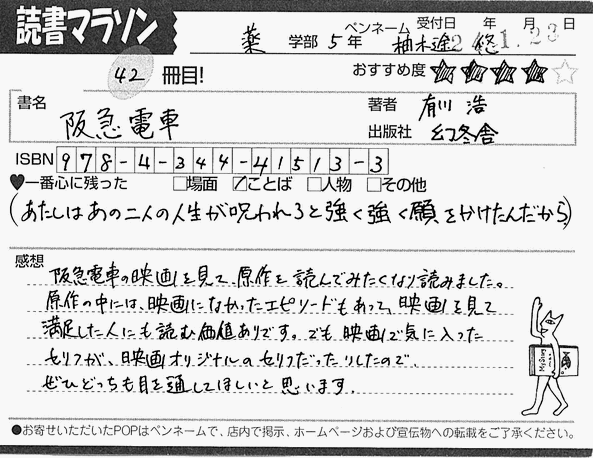 読書マラソン
ペンネーム 受付日 年 月 日
薬 学部 5年 柚木 途 1.23
42 冊目! おすすめ度 ★★★★☆
書名 阪急電車
著者 有川 浩
出版社 幻冬舎
ISBN 978-4-344-41513-3
♥一番心に残った □場面 ☑ことば □人物 □その他
(あたしはあの二人の人生が呪われろと強く強く願をかけたんだから)
感想
阪急電車の映画を見て、原作を読んでみたくなり読みました。
原作の中には、映画になかったエピソードもあって、映画を見て
満足した人にも読む価値ありです。でも映画で気に入った
セリフが、映画オリジナルのセリフだったりしたので、
ぜひどっちも目を通してほしいと思います。
●お寄せいただいたPOPはペンネームで、店内で掲示、ホームページおよび宣伝物への転載をご了承ください。